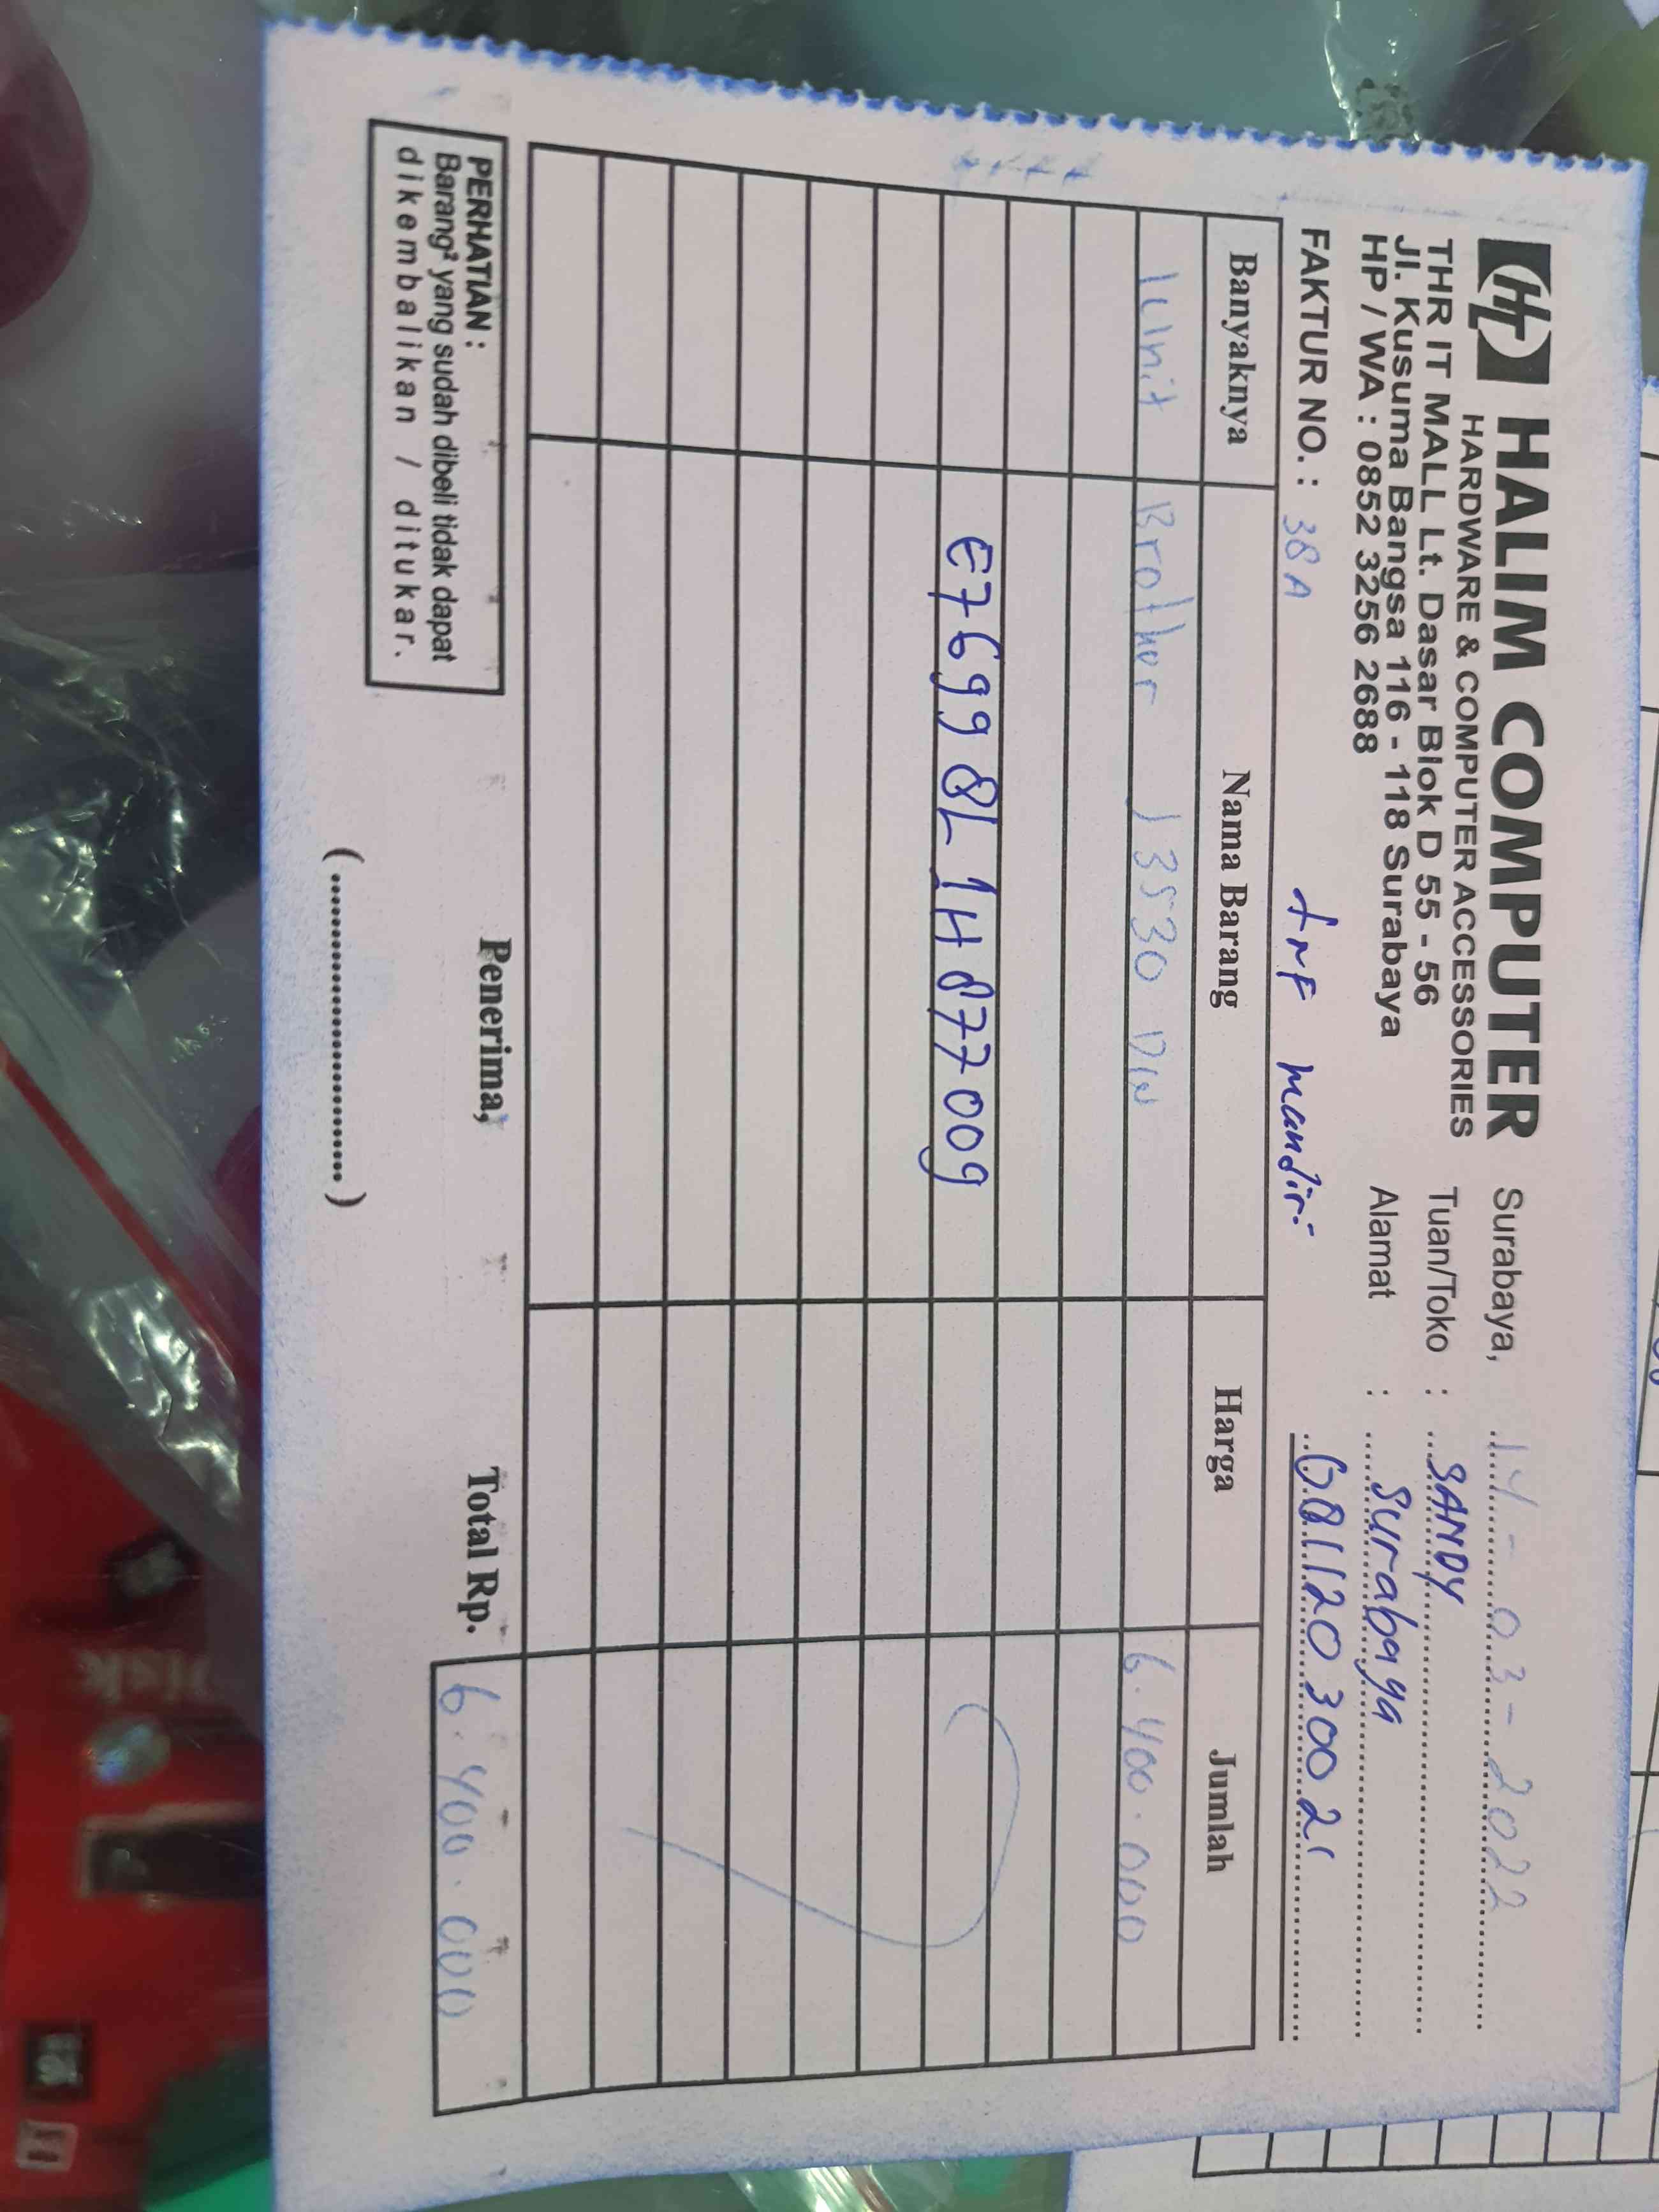 HALIM COMPUTER
HARDWARE & COMPUTER ACCESSORIES
THR IT MALL Lt. Dasar Blok D 55 - 56
Jl. Kusuma Bangsa 116 - 118 Surabaya
HP / WA : 0852 3256 2688
Surabaya, 14 - 03 - 2022
Tuan/Toko : SANDY
Alamat : Surabaya
0811203002
FAKTUR NO. : 38A
trf mandiri
Banyaknya Nama Barang Harga Jumlah
1 Unit Brother J 3530 DW 6.400.000
E76998L1H877009
PERHATIAN :
Barang² yang sudah dibeli tidak dapat
dikembalikan / ditukar.
Penerima,
(........................)
Total Rp. 6.400.000